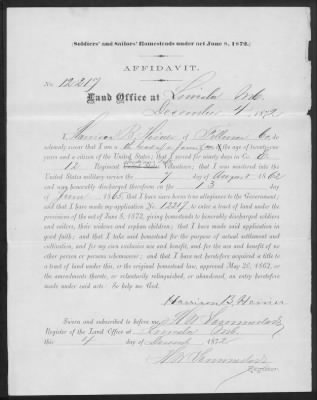 (Soldiers' and Sailors' Homesteads under act June 8, 1872.)
AFFIDAVIT.
No. 12217
Land Office at Lincoln Neb.
December 4, 1872
I, Harrison B. of Co. do
solemnly swear that I am a the head of a family of the age of twenty-one
years and a citizen of the United States; that I served for ninety days in Co. E
12 Regiment Volunteers; that I was mustered into the
United States military service the 7 day of August 1862
and was honorably discharged therefrom on the 13 day
of June 1865; that I have since borne true allegiance to the Government;
and that I have made my application No. 12217, to enter a tract of land under the
provisions of the act of June 8, 1872, giving homesteads to honorably discharged soldiers
and sailors, their widows and orphan children; that I have made said application in
good faith; and that I take said homestead for the purpose of actual settlement and
cultivation, and for my own exclusive use and benefit, and for the use and benefit of no
other person or persons whomsoever; and that I have not heretofore acquired a title to
a tract of land under this, or the original homestead law, approved May 20, 1862, or
the amendments thereto, or voluntarily relinquished, or abandoned, an entry heretofore
made under said acts: So help me God.
Harrison B.
Sworn and subscribed to before me,
Register of the Land Office at Lincoln Neb.
this 4 day of December 1872
Register.